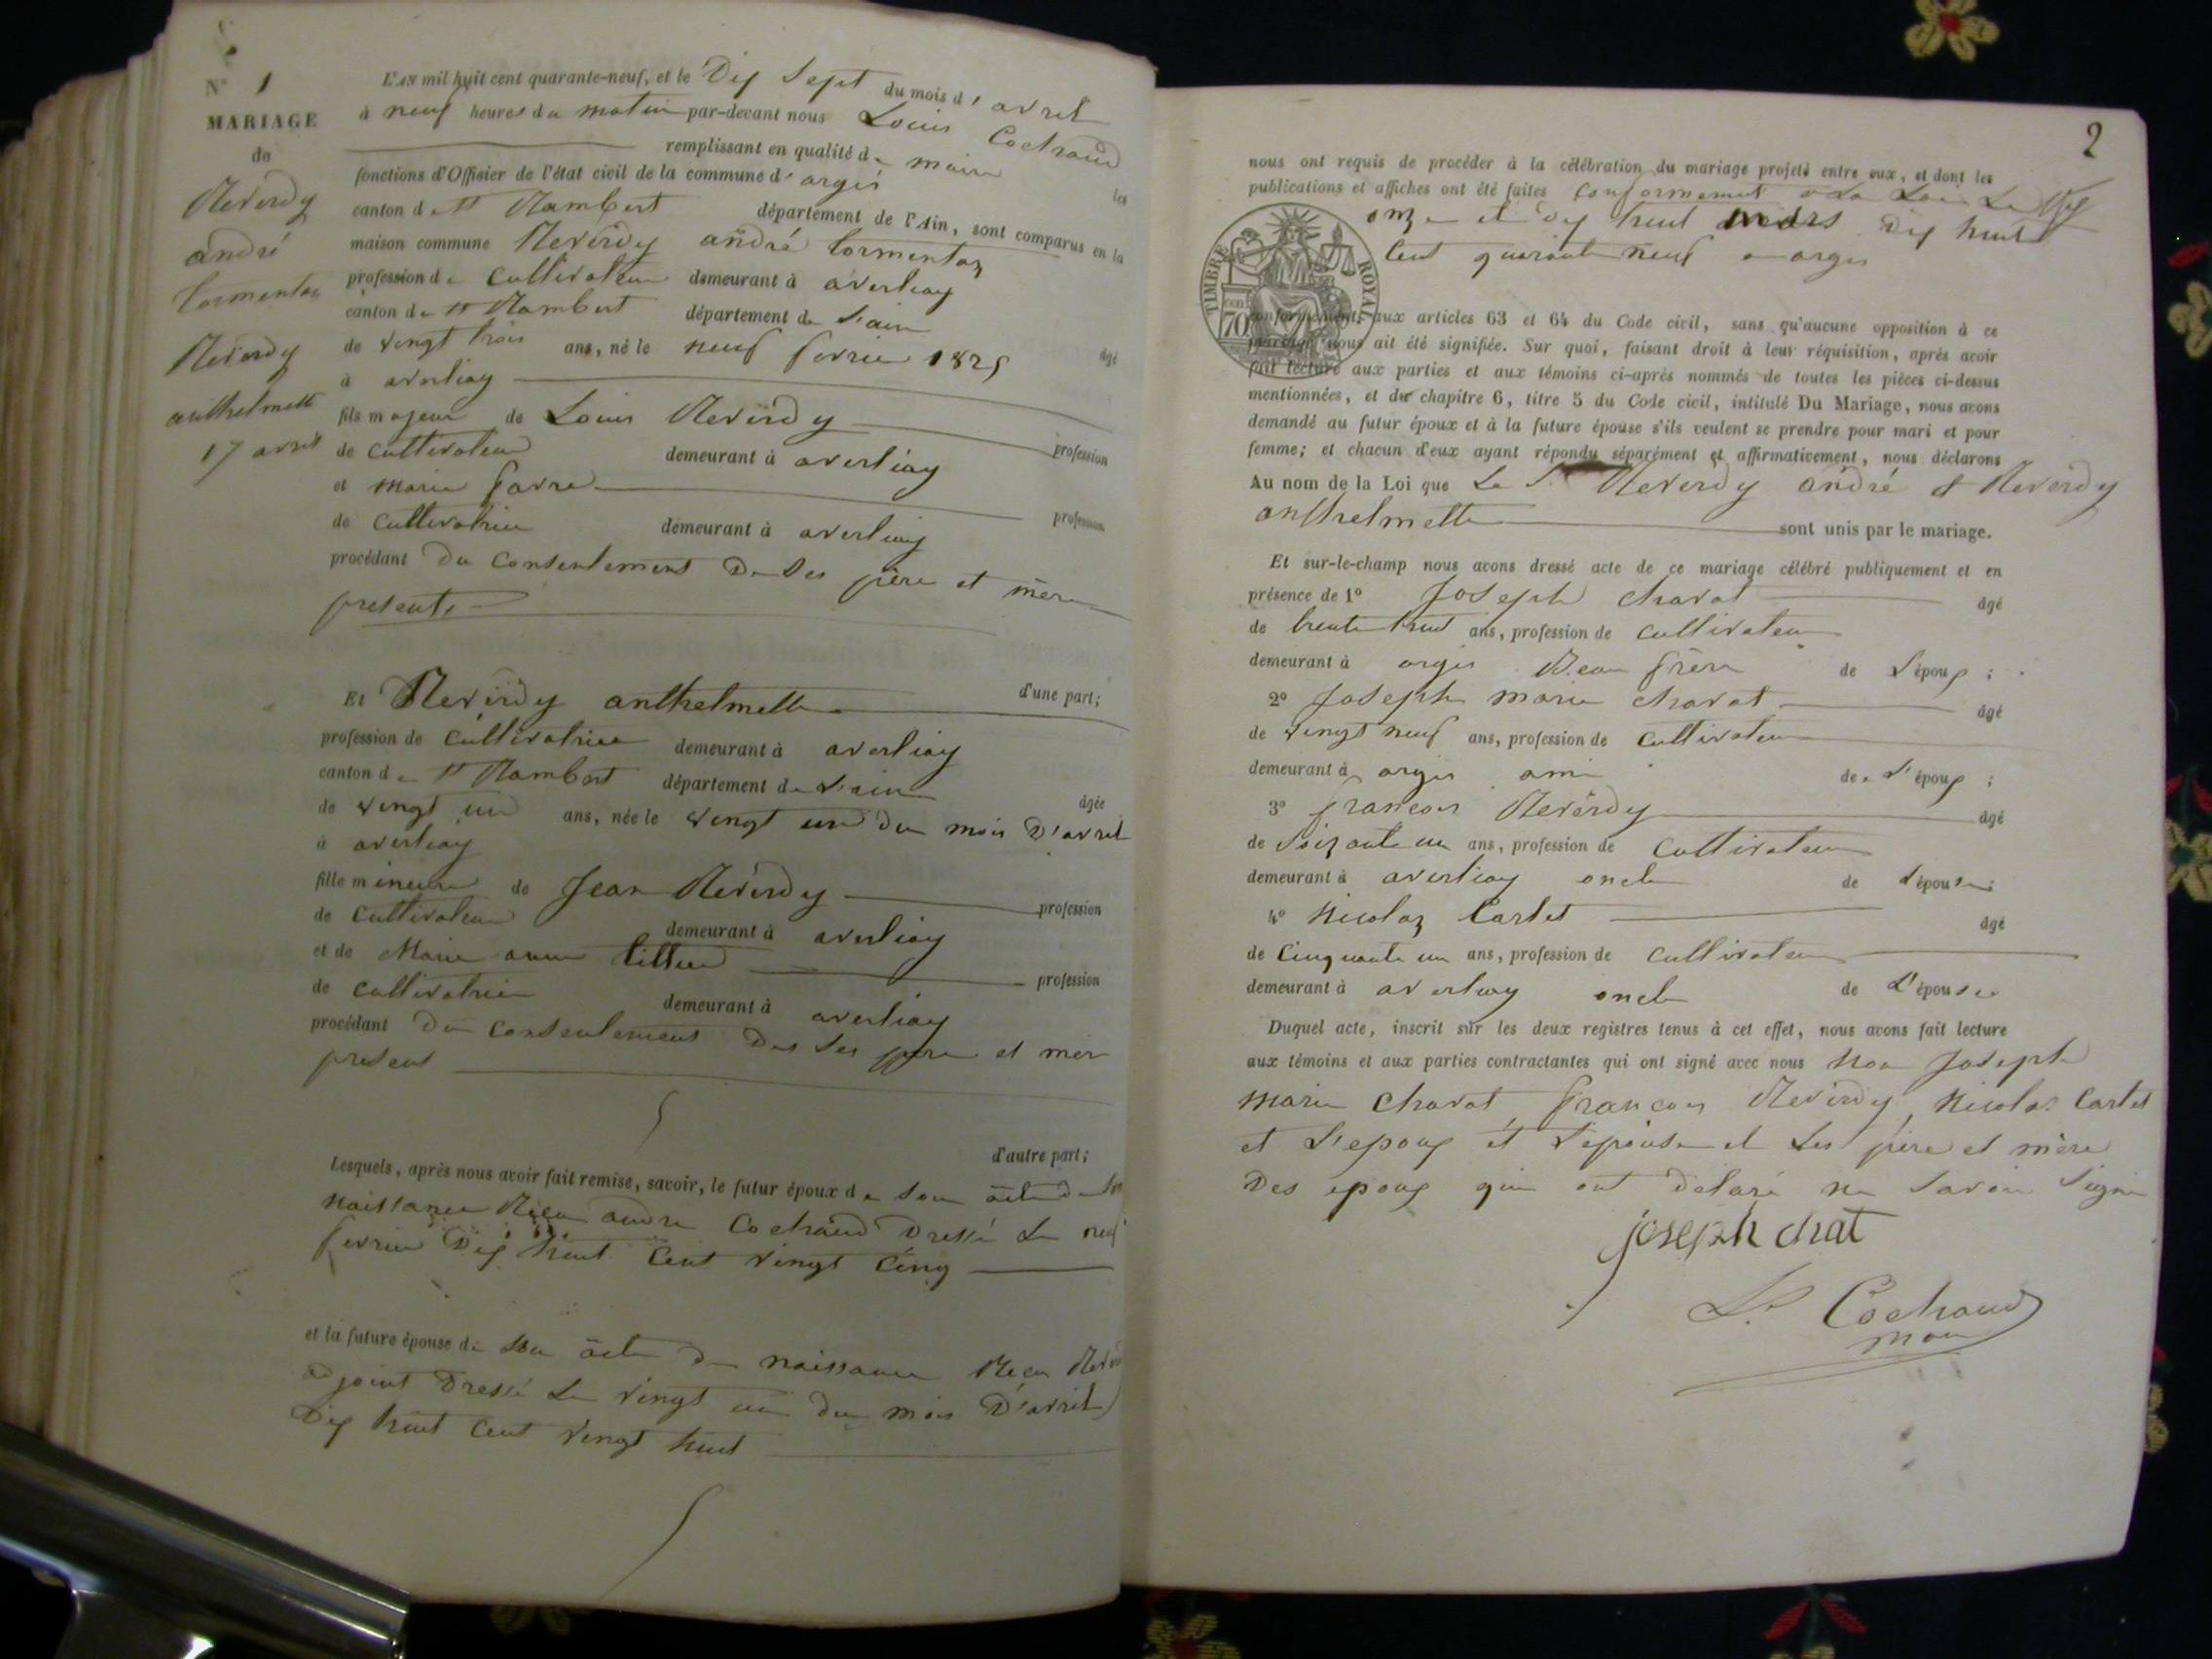 N° 1
MARIAGE
de
Reverdy
andré
tormentaz
Reverdy
anthelmette
17 avril
L'AN mil huit cent quarante-neuf, et le Dix Sept du mois d'avril
à neuf heures du matin par-devant nous Louis Cochaud
remplissant en qualité de maire les
fonctions d'Officier de l'état civil de la commune d'argis
canton de St Rambert département de l'Ain, sont comparus en la
maison commune Reverdy andré tormentaz
profession de Cultivateur demeurant à
canton de St Rambert département de L'ain âgé
de vingt trois ans, né le neuf fevrier 1825
à
fils majeur de Louis Reverdy profession
de cultivateur demeurant à
et marie favre profession
de cultivatrice demeurant à
procédant du Consentement De Ses père et mère
presents
d'une part;
Et Reverdy anthelmette
profession de Cultivatrice demeurant à
canton de St Rambert département de L'ain âgée
de vingt un ans, née le vingt un du mois D'avril
à
fille mineure de Jean Reverdy profession
de Cultivateur demeurant à
et de Marie anne profession
de cultivatrice demeurant à
procédant du consentement Des Ses père et mer
present
d'autre part;
Lesquels, après nous avoir fait remise, savoir, le futur époux de Son acte de
naissance Reçu andre Cochaud Dressé Le neuf
fevrier Dix huit Cent vingt Cinq
et la future épouse de Son acte De naissance Reçu
adjoint Dressé Le vingt un du mois D'avril
Dix huit cent vingt huit
2
nous ont requis de procéder à la célébration du mariage projeté entre eux, et dont les
publications et affiches ont été faites Conformement a La Loi Le
onze et dix huit mars Dix huit
Cent quarante neuf a argis
TIMBRE ROYAL
70
conformément aux articles 63 et 64 du Code civil, sans qu'aucune opposition à ce
mariage nous ait été signifiée. Sur quoi, faisant droit à leur réquisition, après avoir
fait lecture aux parties et aux témoins ci-après nommés de toutes les pièces ci-dessus
mentionnées, et du chapitre 6, titre 5 du Code civil, intitulé Du Mariage, nous avons
demandé au futur époux et à la future épouse s'ils veulent se prendre pour mari et pour
femme; et chacun d'eux ayant répondu séparément et affirmativement, nous déclarons
Au nom de la Loi que Le S. Reverdy andré et Reverdy
anthelmette sont unis par le mariage.
Et sur-le-champ nous avons dressé acte de ce mariage célébré publiquement et en
présence de 1° Joseph charat âgé
de trente huit ans, profession de cultivateur
demeurant à argis Beau frère de L'époux ;
2° Joseph marie charat âgé
de vingt neuf ans, profession de cultivateur
demeurant à argis ami de L'époux ;
3° francois Reverdy âgé
de Soizante un ans, profession de cultivateur
demeurant à oncle de L'épouse;
4° Nicolaz Carlet âgé
de Cinquante un ans, profession de cultivateur
demeurant à oncle de L'épouse
Duquel acte, inscrit sur les deux registres tenus à cet effet, nous avons fait lecture
aux témoins et aux parties contractantes qui ont signé avec nous Non Joseph
marie Charat, francois Reverdy, Nicolas Carlet
et L'epoux et L'epouse et Les père et mère
Des epoux qui ont delaré ne Savoir Signer
joseph chat
Ls Cochaud